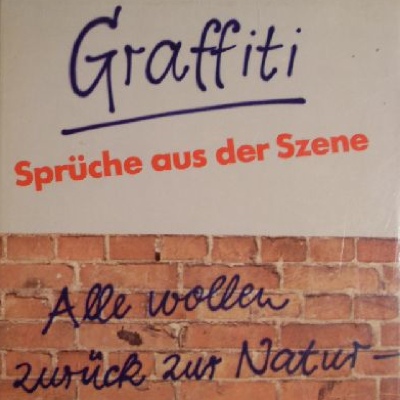 Graffiti
Sprüche aus der Szene
Alle wollen
zurück zur Natur-